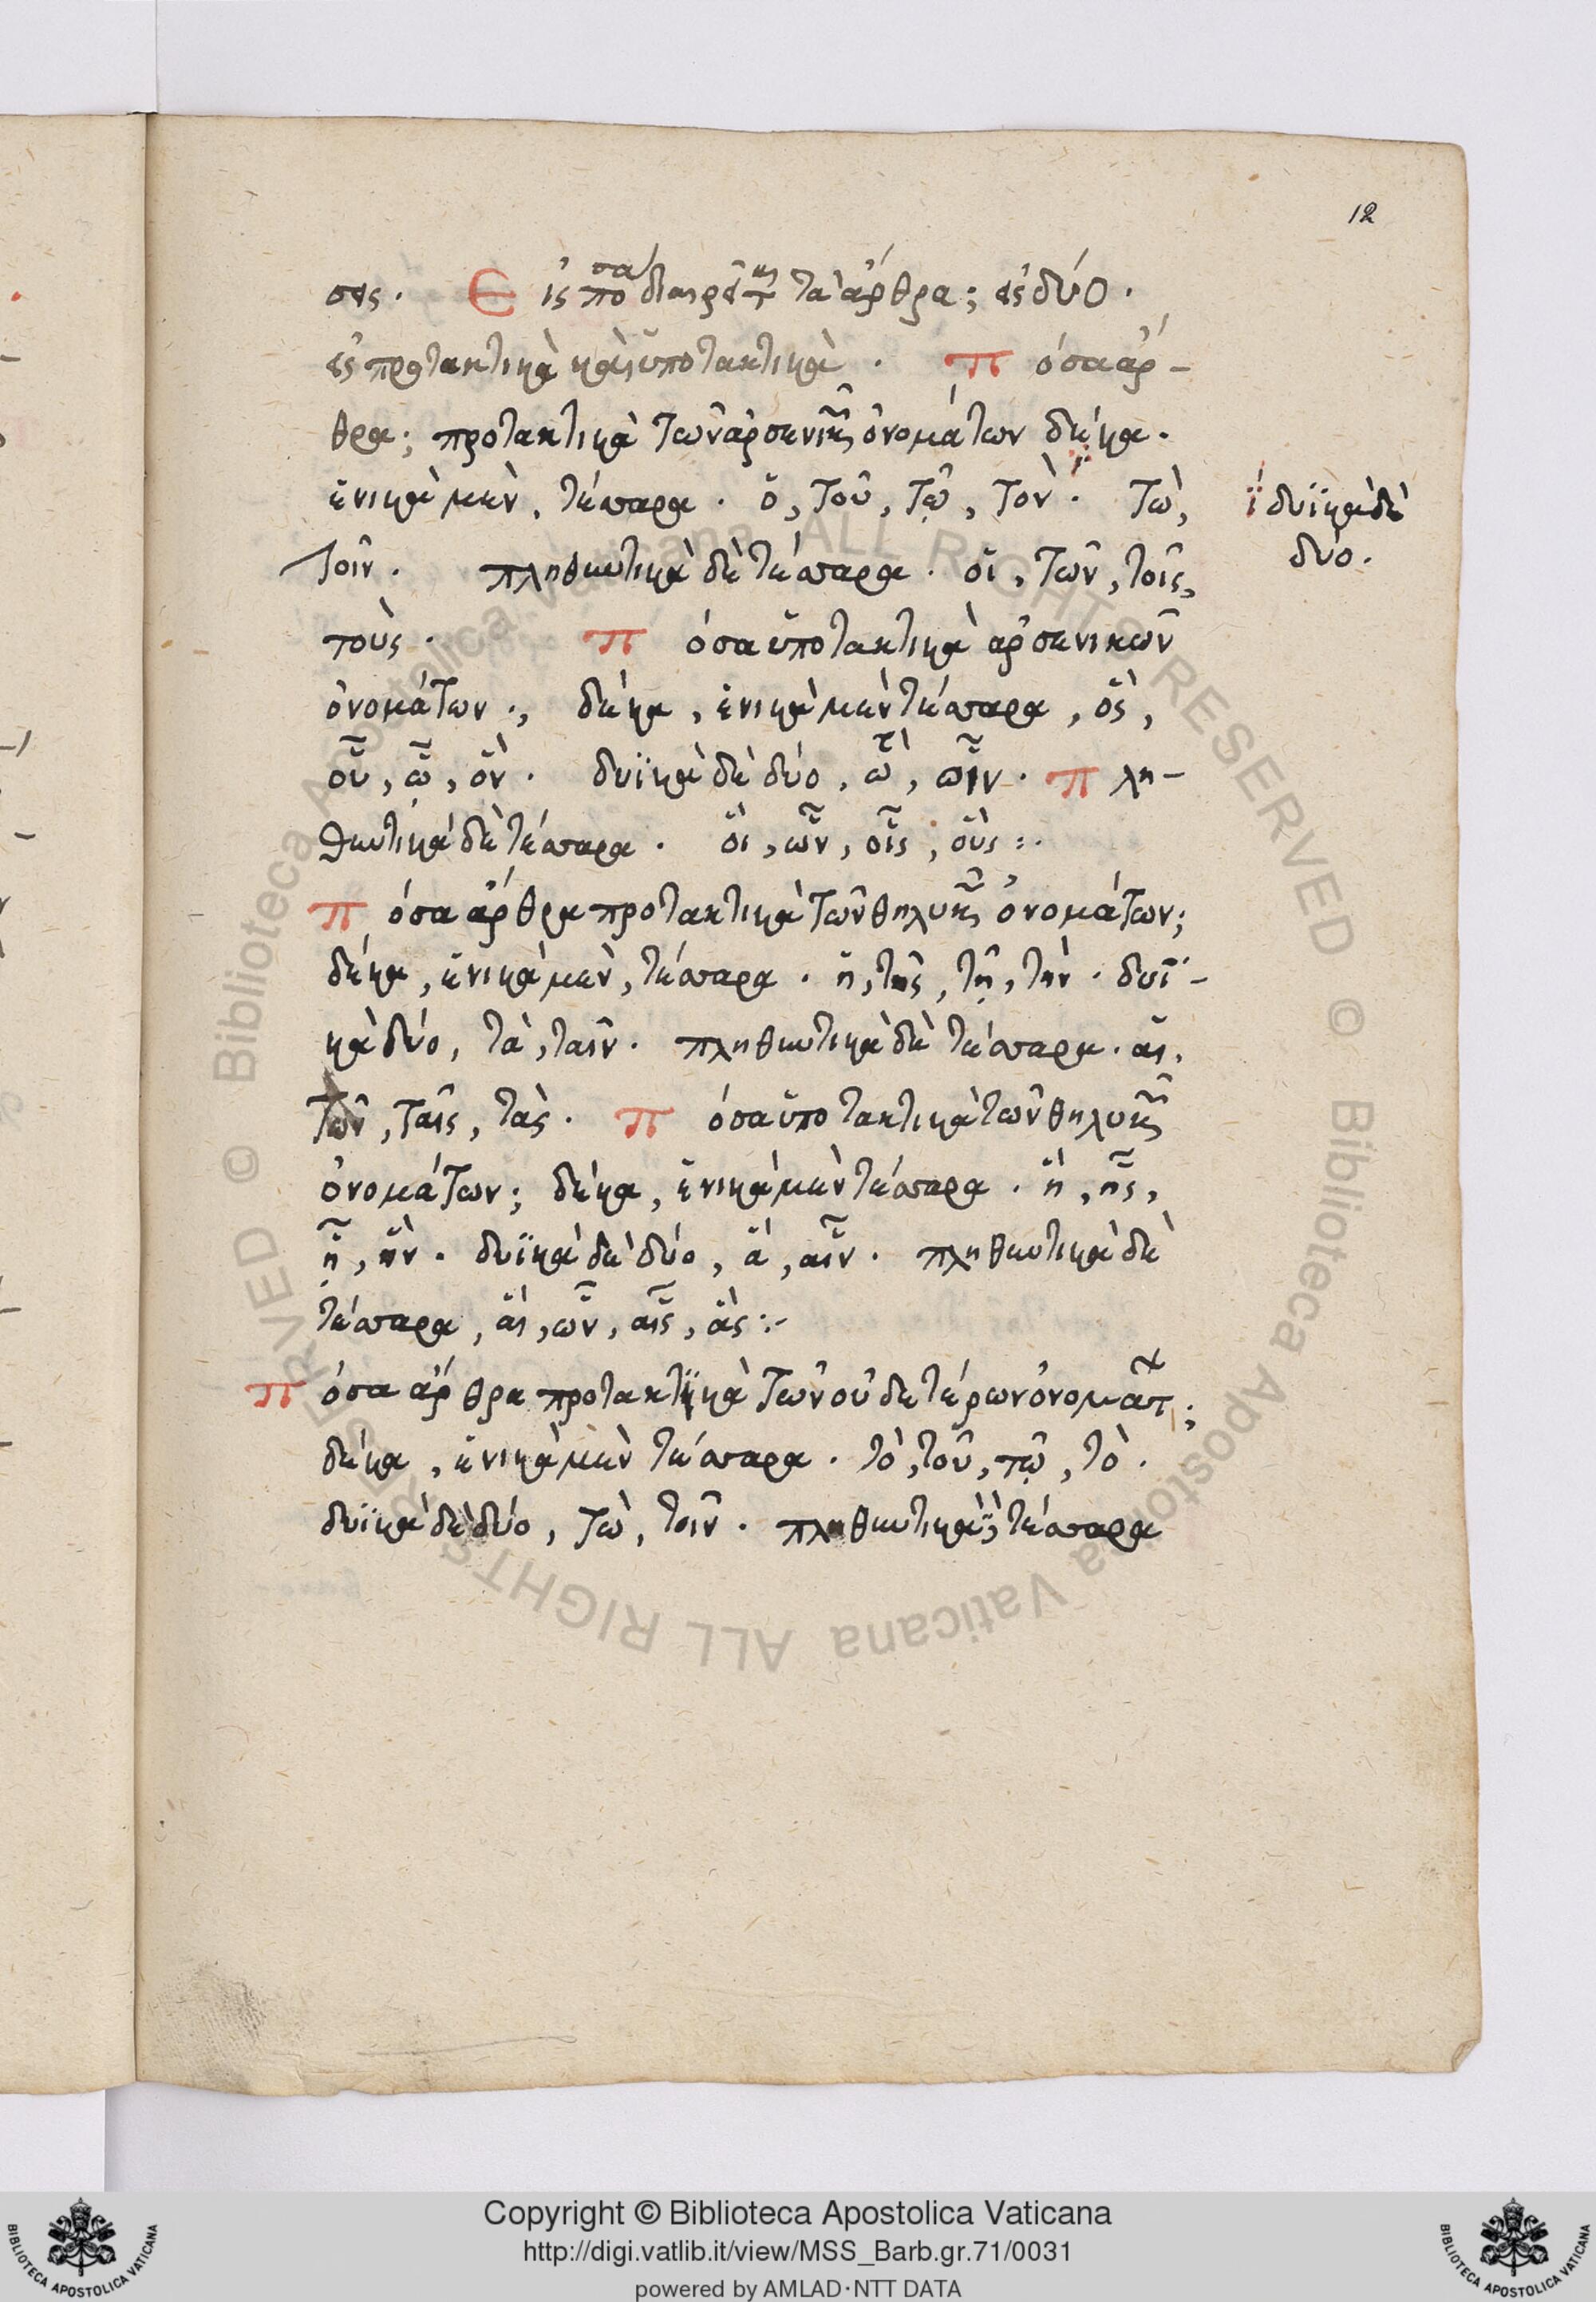 12
σεις. Εἰς πόσα διαιρεῖται τὰ ἄρθρα; εἰς δύο.
εἰς προτακτικὰ καὶ ὑποτακτικὰ. Πόσα ἄρ-
θρα; προτακτικὰ τῶν ἀρσενικῶν ὀνομάτων δέκα.
ἑνικὰ μὲν, τέσσαρα. ὁ, τοῦ, τῷ, τὸν. τὼ,
δυϊκὰ δὲ
δύο.
τοῖν. πληθυντικὰ δὲ τέσσαρα. οἱ, τῶν, τοῖς,
τοὺς. Πόσα ὑποτακτικὰ ἀρσενικῶν
ὀνομάτων., δέκα, ἑνικὰ μὲν τέσσαρα, ὃς,
οὗ, ᾧ, ὃν. δυϊκὰ δὲ δύο, ὣ, οἷν. Πλη-
θυντικὰ δὲ τέσσαρα. οἳ, ὧν, οἷς, οὓς:.
Πόσα ἄρθρα προτακτικὰ τῶν θηλυκῶν ὀνομάτων;
δέκα, ἑνικὰ μὲν, τέσσαρα. ἡ, τῆς, τῇ, τὴν. δυϊ-
κὰ δύο, τὰ, ταῖν. πληθυντικὰ δὲ τέσσαρα. αἱ,
τῶν, ταῖς, τὰς. Πόσα ὑποτακτικὰ τῶν θηλυκῶν
ὀνομάτων; δέκα, ἑνικὰ μὲν τέσσαρα. ἣ, ἧς,
ᾗ, ἣν. δυϊκὰ δὲ δύο, ἃ, αἷν. πληθυντικὰ δὲ
τέσσαρα, αἳ, ὧν, αἷς, ἃς:-
Πόσα ἄρθρα προτακτικὰ τῶν οὐδετέρων ὀνομάτων;
δέκα, ἑνικὰ μὲν τέσσαρα. τὸ, τοῦ, τῷ, τὸ.
δυϊκὰ δὲ δύο, τὼ, τοῖν. πληθυντικὰ δὲ τέσσαρα
© Biblioteca Apostolica Vaticana ALL RIGHTS RESERVED © Biblioteca Apostolica Vaticana ALL RIGHTS RESERVED
Copyright © Biblioteca Apostolica Vaticana
http://digi.vatlib.it/view/MSS_Barb.gr.71/0031
powered by AMLAD·NTT DATA
BIBLIOTECA APOSTOLICA VATICANA
BIBLIOTECA APOSTOLICA VATICANA